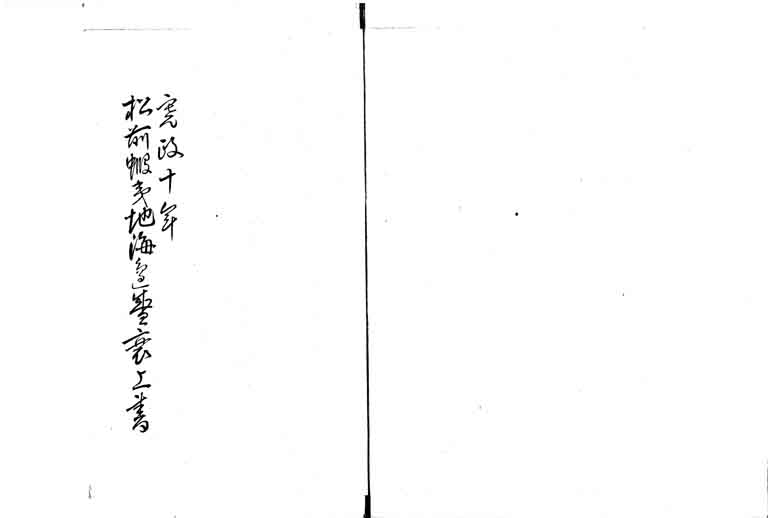 寛政十年
松前蝦夷地海邊盛衰上書